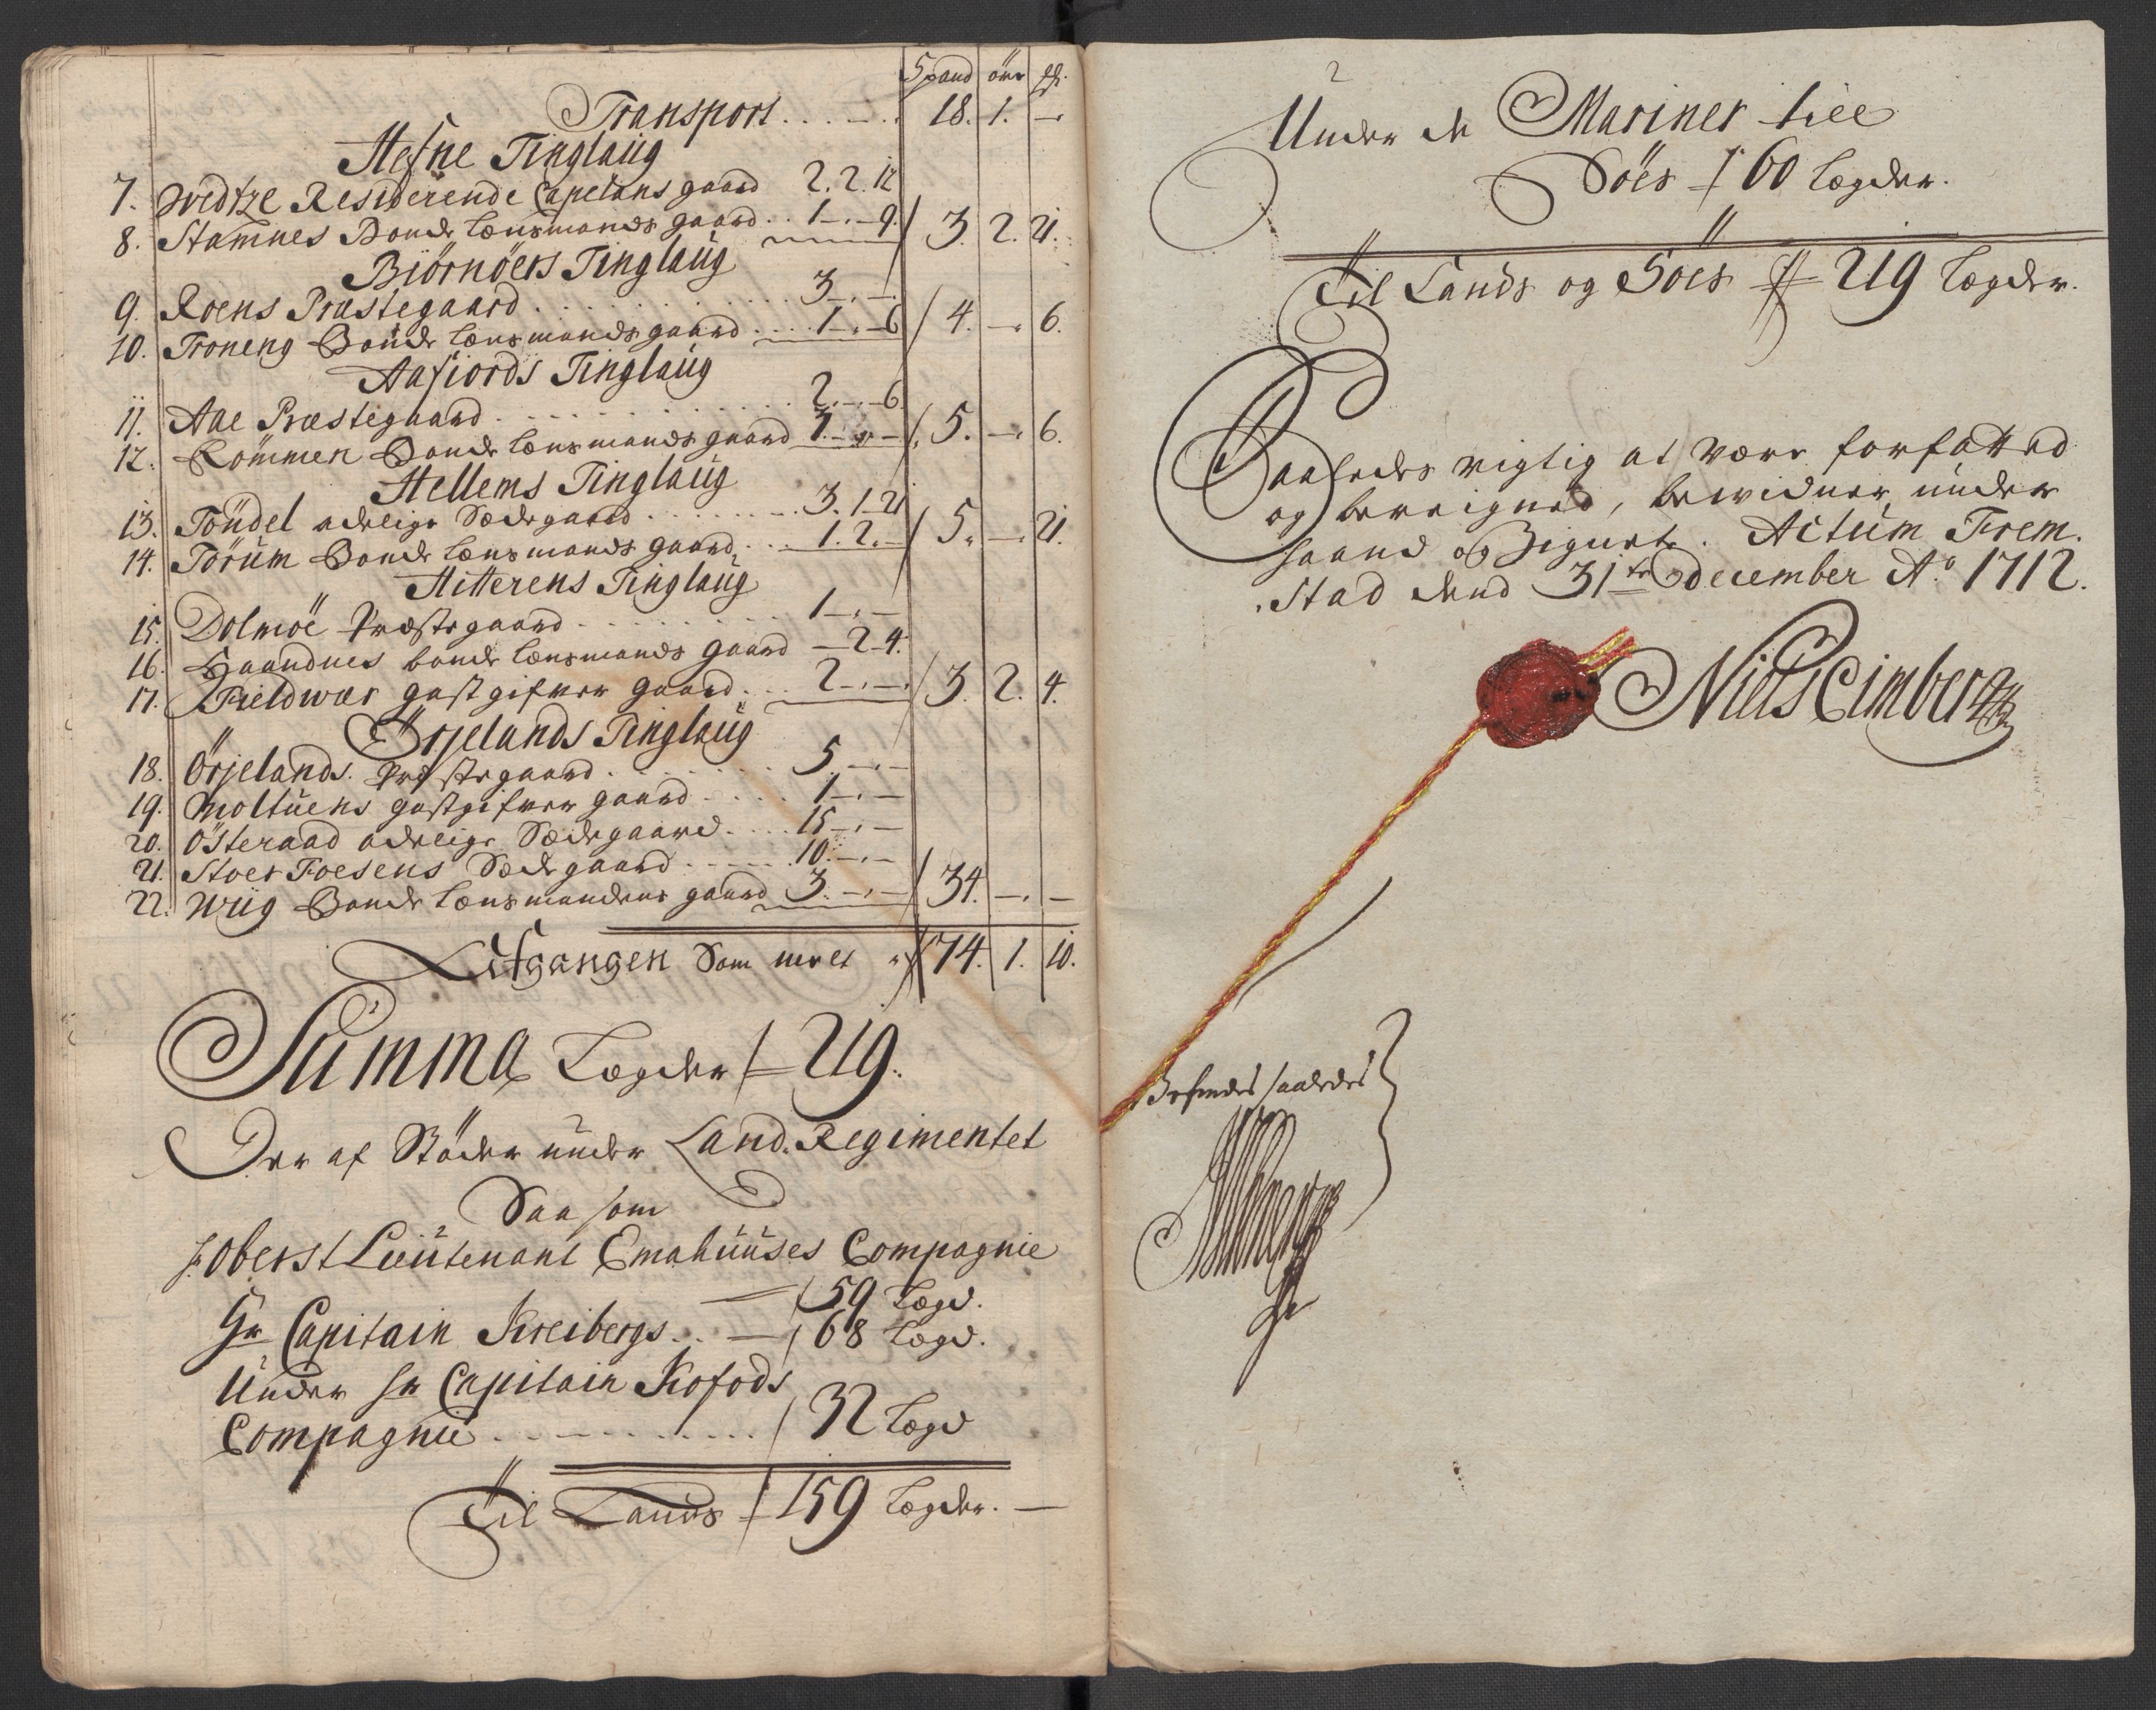 Spand öre
Transport . . . . . 18. 1. —
Hefne Tinglaüg
7. Wedtze Residerende Capelans gaard 2. 2. 12
8. Stamnes Bonde Lensmands gaard . . 1 — . — 9. / 3. 2. 21.
Biörnöers Tinglaüg
9. Roens Præstegaard . . . . . 3 — . —
10. Troneng Bonde Lensmands gaard . . . . 1 — . — 6 / 4. — . 6.
Aafiords Tinglaüg
11. Aae Præstegaard . . . . . 2 — . — 6
12. Römmen Bonde Lensmands gaard 3. — . — / 5. — . 6.
Hellems Tinglaüg
13. Töndel adelige Sædegaard . . . . . 3. 1. 21
14. Törum Bonde Lensmands gaard . . 1. 2. — / 5. — . 21.
Hitterens Tinglaüg
15. Dolmöe Præste gaard . . . . . 1 — . —
16. Haandnes bonde Lensmands Gaard — 2 4.
17. Fieldwær gastgifver gaard . . . 2 — . — / 3. 2. 4.
Örjelands Tinglaüg
18. Örjelands Præste gaard . . . . . 5. — . —
19. Moltüens gastgifver gaard . . . . 1 — . —
20. Österaad adelige Sædegaard . . . . 15 — . —
21. Stoer Foesens Sæde gaard . . . . . 10. — . —
22. Wiig Bonde Lensmandens gaard 3. — . — / 34. — . —
Lifgangen Som er et 74. 1. 10.
Summa Lægder 219.
Der af Støder under Land. Regimentet
Saasom
Hr Oberst Lieütenant Emahüüses Compagnie
59 Lægd.
Hr Capitain Kreibergs . . — 68 Lægd.
Under Hr Capitain Kofods
Compagnie . . . . . 32 Lægd
Til Lands 159 Lægder. —
Under de Mariner till
Söes 60 Lægder.
Til Lands og Söes 219 Lægder.
Saaledes rigtig at være forfatted
og beregned, bevidner under
haand og Zignete. Actum Trom.
Stad dend 31te December Ao 1712.
Niels Cimber
Befindes saaledes